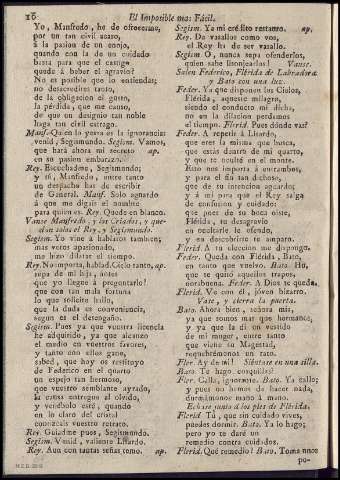 16
El Imposible mas Fácil.
Yo, Manfredo, he de ofrecerme,
por un tan civil acaso,
á la pasion de un enojo,
quando con la de un cuidado
basta para que el castigo
quede á deber el agravio?
No es posible que lo entiendas;
no desacredites tanto,
de la obligacion el gusto,
la pérdida, que me canso,
de que un designio tan noble
haga tan civil estrago.
Manf. Quien la yerra es la ignorancia:
venid, Segismundo. Segism. Vamos,
que hará ahora mi secreto ap.
en su pasion embarazo.
Rey. Escuchadme, Segismundo;
y tú, Manfredo, entre tanto
un despacho has de escribir
de General. Manf. Solo aguardo
á que me digais el nombre
para quien es. Rey. Quede en blanco.
Vanse Manfredo, y los Criados, y quedan
solos el Rey, y Segismundo.
Segism. Yo vine á hablaros tambien;
mas veros apasionado,
me hizo dilatar el tiempo.
Rey. No importa, hablad. Cielo santo, ap.
sepa de mi hija, antes
que yo llegue á preguntarlo!
que con tan mala fortuna
lo que solicito hallo,
que la duda es conveniencia,
segun es el desengaño.
Segism. Pues ya que vuestra licencia
he adquirido, y ya que alcanzo
el medio en vuestros favores,
y tanto con ellos gano,
sabed, que hoy os restituyo
de Federico en el quarto
un espejo tan hermoso,
que vuestro semblante ayrado,
la causa entregue al olvido,
y vendbolo esté, quando
en lo claro del cristal
conozcais vuestro retrato.
Rey. Guiadme pues, Segismundo.
Segism. Venid, valiente Lisardo.
Rey. Aun con tantas señas temo. ap.
Segism. Ya mi crédito restauro. ap.
Rey. De vasallos como vos,
el Rey ha de ser vasallo.
Segism. O, nunca sepa ofenderlos,
quien sabe lisonjearlos! Vanse.
Salen Federico, Flérida de Labradora,
y Bato con una luz.
Feder. Ya que disponen los Cielos,
Flérida, aqueste milagro,
siendo el conducto mi dicha,
no en la dilacion perdamos
el tiempo. Flerid. Pues dónde vas?
Feder. A repetir á Lisardo,
que eres la misma que busca,
que estás dentro de mi quarto,
y que te oculté en el monte.
Esto nos importa á entrambos,
y para el fin tan dichoso,
que de su intencion aguardo;
y á mí para que el Rey salga
de confusion y cuidado:
que pues de su boca oiste,
Flérida, su desagravio
en ocultarle le ofendo,
y en descubrirte te amparo.
Flerid. A tu eleccion me dispongo.
Feder. Queda con Flérida, Bato,
en tanto que vuelvo. Bato. Hu,
que te quitó aquellos trapos,
norabuena. Feder. A Dios te queda.
Flerid. Ve con él, jóven bizarro.
Vase, y cierra la puerta.
Bato. Ahora bien, señora mia,
ya que somos mas que hermanos,
y ya que la di un vestido
de mi muger, entre tanto
que viene su Magestad,
requebrémonos un rato.
Fler. Ay de mí! Sientase en una silla.
Bato. Te hago cosquillas?
Fler. Calla, ignorante. Bato. Ya callo;
y pues no hemos de hacer nada,
durmámonos mano á mano.
Echase junto á los pies de Flérida.
Flerid. Tú, que sin cuidado vives,
puedes dormir. Bato. Ya lo hago;
pero yo te daré un
remedio contra cuidados.
Flerid. Qué remedio? Bato. Toma unos
po-